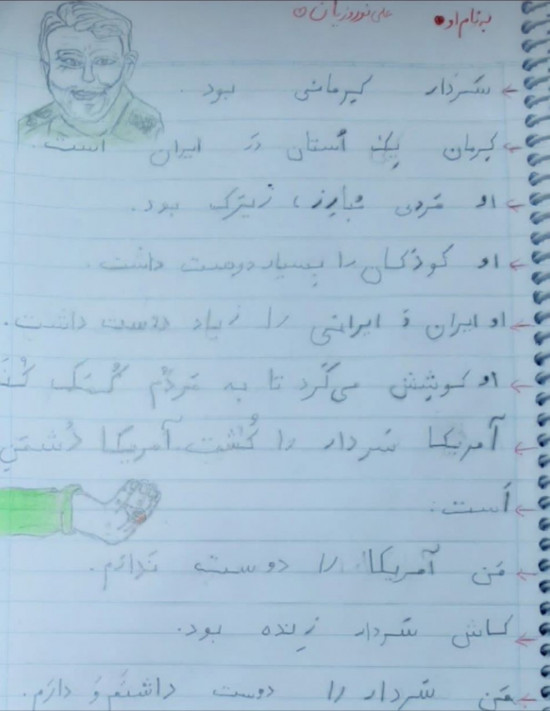 به نام او علی نوروزیان
سَردار کِرمانی بود.
کِرمان یِک اُستان دَر ایران است.
او مَردی مُبارِز، زیرَک بود.
او کودَکان را بِسیار دوست داشت.
او ایران وَ ایرانی را زیاد دوست داشت.
او کوشِش می‌کَرد تا به مَردُم کُمَک کُنَد
آمریکا سَردار را کُشت آمریکا دُشمَنِ
اَست.
مَن آمریکا را دوست نَدارَم.
کاش سَردار زِنده بود.
مَن سَردار را دوست داشتَم وَ دارَم.